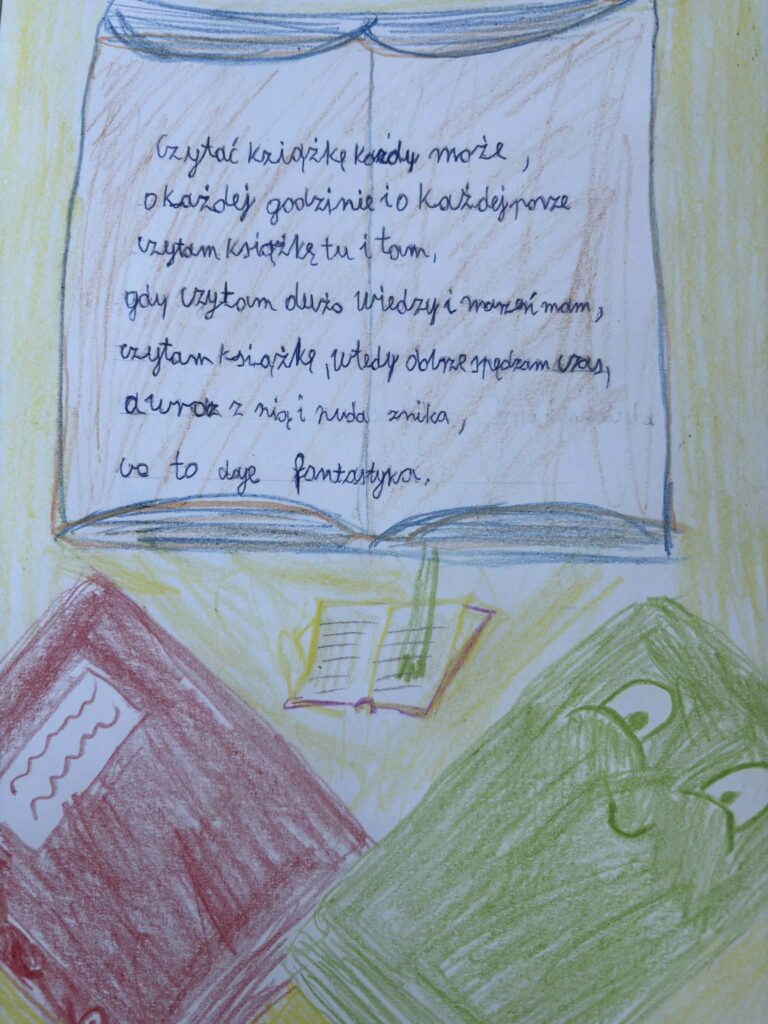 Czytać książkę każdy może,
o każdej godzinie i o każdej porze
czytam książkę tu i tam,
gdy czytam dużo wiedzy i marzeń mam,
czytam książkę, wtedy dobrze spędzam czas,
a wraz z nią i nuda znika,
co to daje fantastyka.